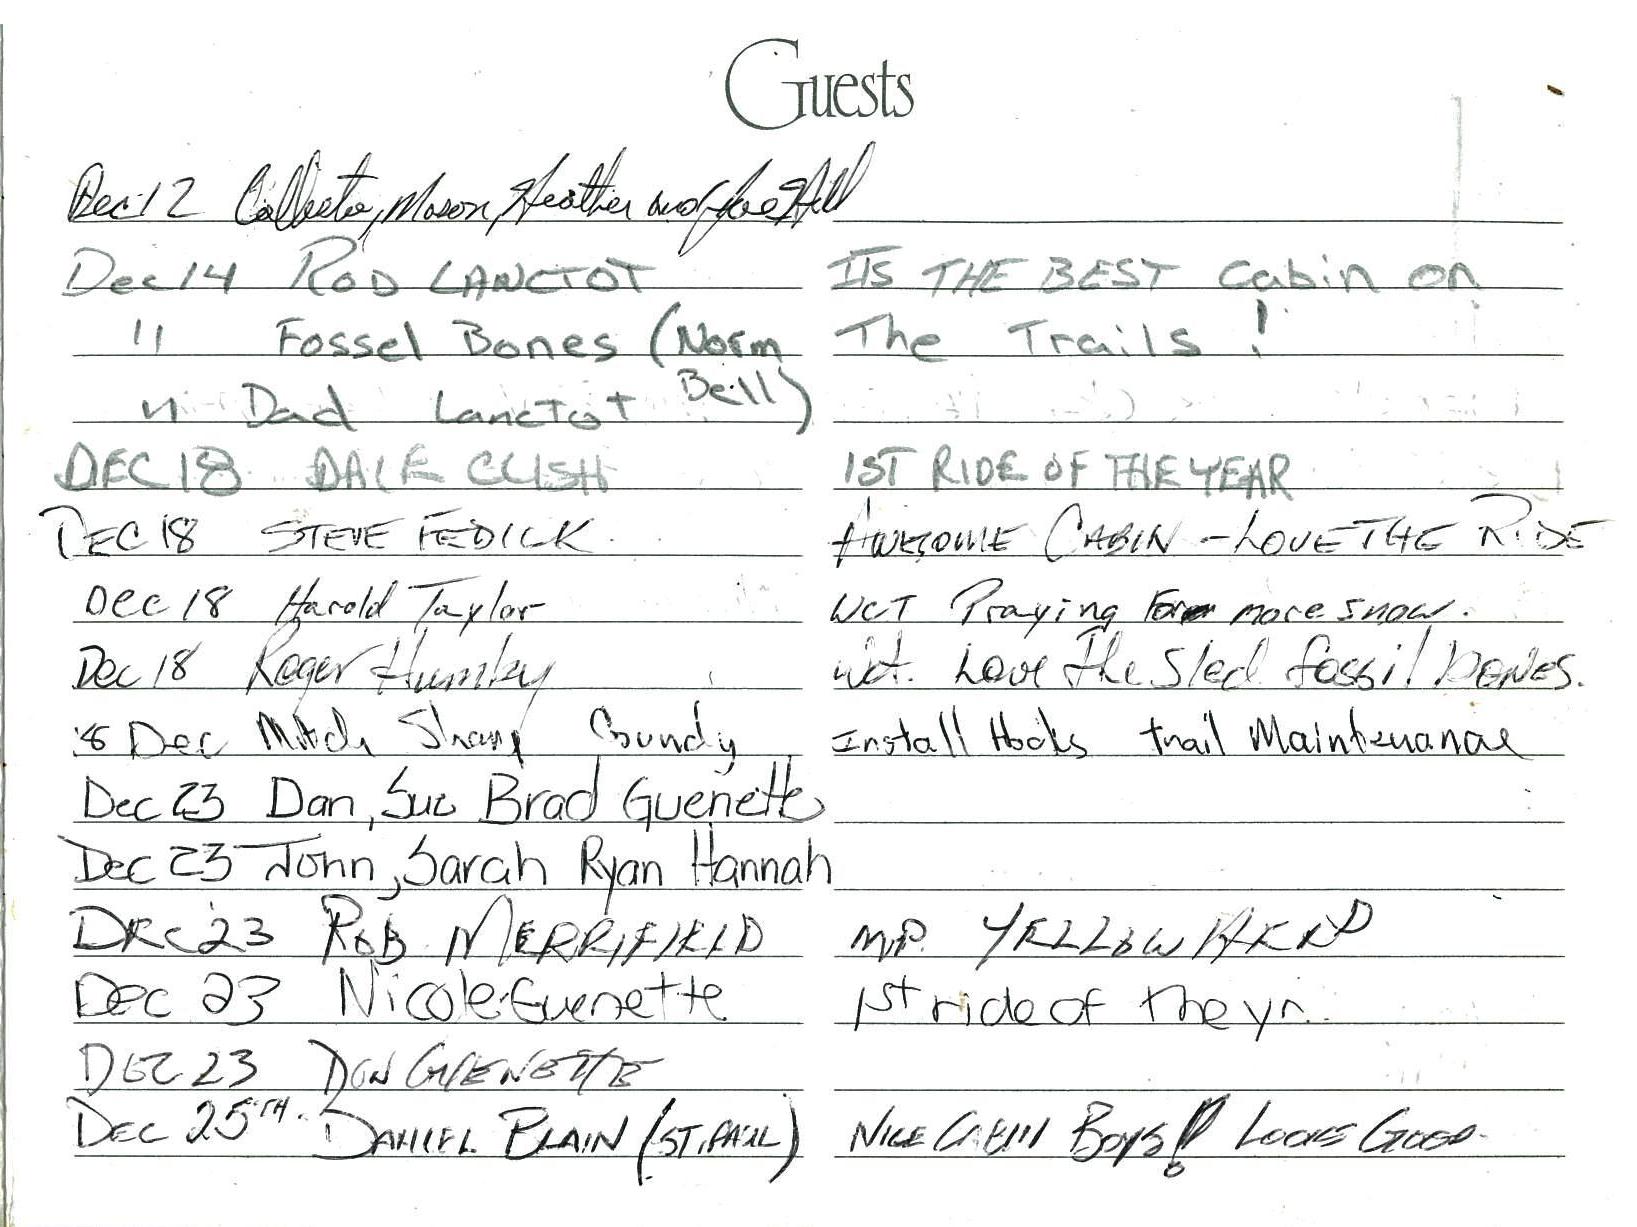 Guests
Dec 12 Mason, Heather and Joe Hill
Dec 14 ROD LANCTOT ITS THE BEST Cabin on
" Fossel Bones (Norm The Trails !
" Dad Lanctot Beill)
DEC 18 DALE CLISH 1ST RIDE OF THE YEAR
DEC 18 STEVE FEDICK AWESOME CABIN - LOVE THE RIDE
Dec 18 Harold Taylor WCT Praying For more snow.
Dec 18 Roger Humby Wct. Love the Sled fossil BONES.
18 Dec Mitch Gundy Install Hooks trail Maintenance
Dec 23 Dan, Sue Brad Guenette
Dec 23 John, Sarah Ryan Hannah
DEC 23 ROB MERRIFIELD M.P. YELLOWHEAD
Dec 23 Nicole Guenette 1st ride of the yr.
DEC 23 DON GUENETTE
DEC 25TH. DANIEL BLAIN (ST. PAUL) NICE CABIN BOYS! LOOKS GOOD.